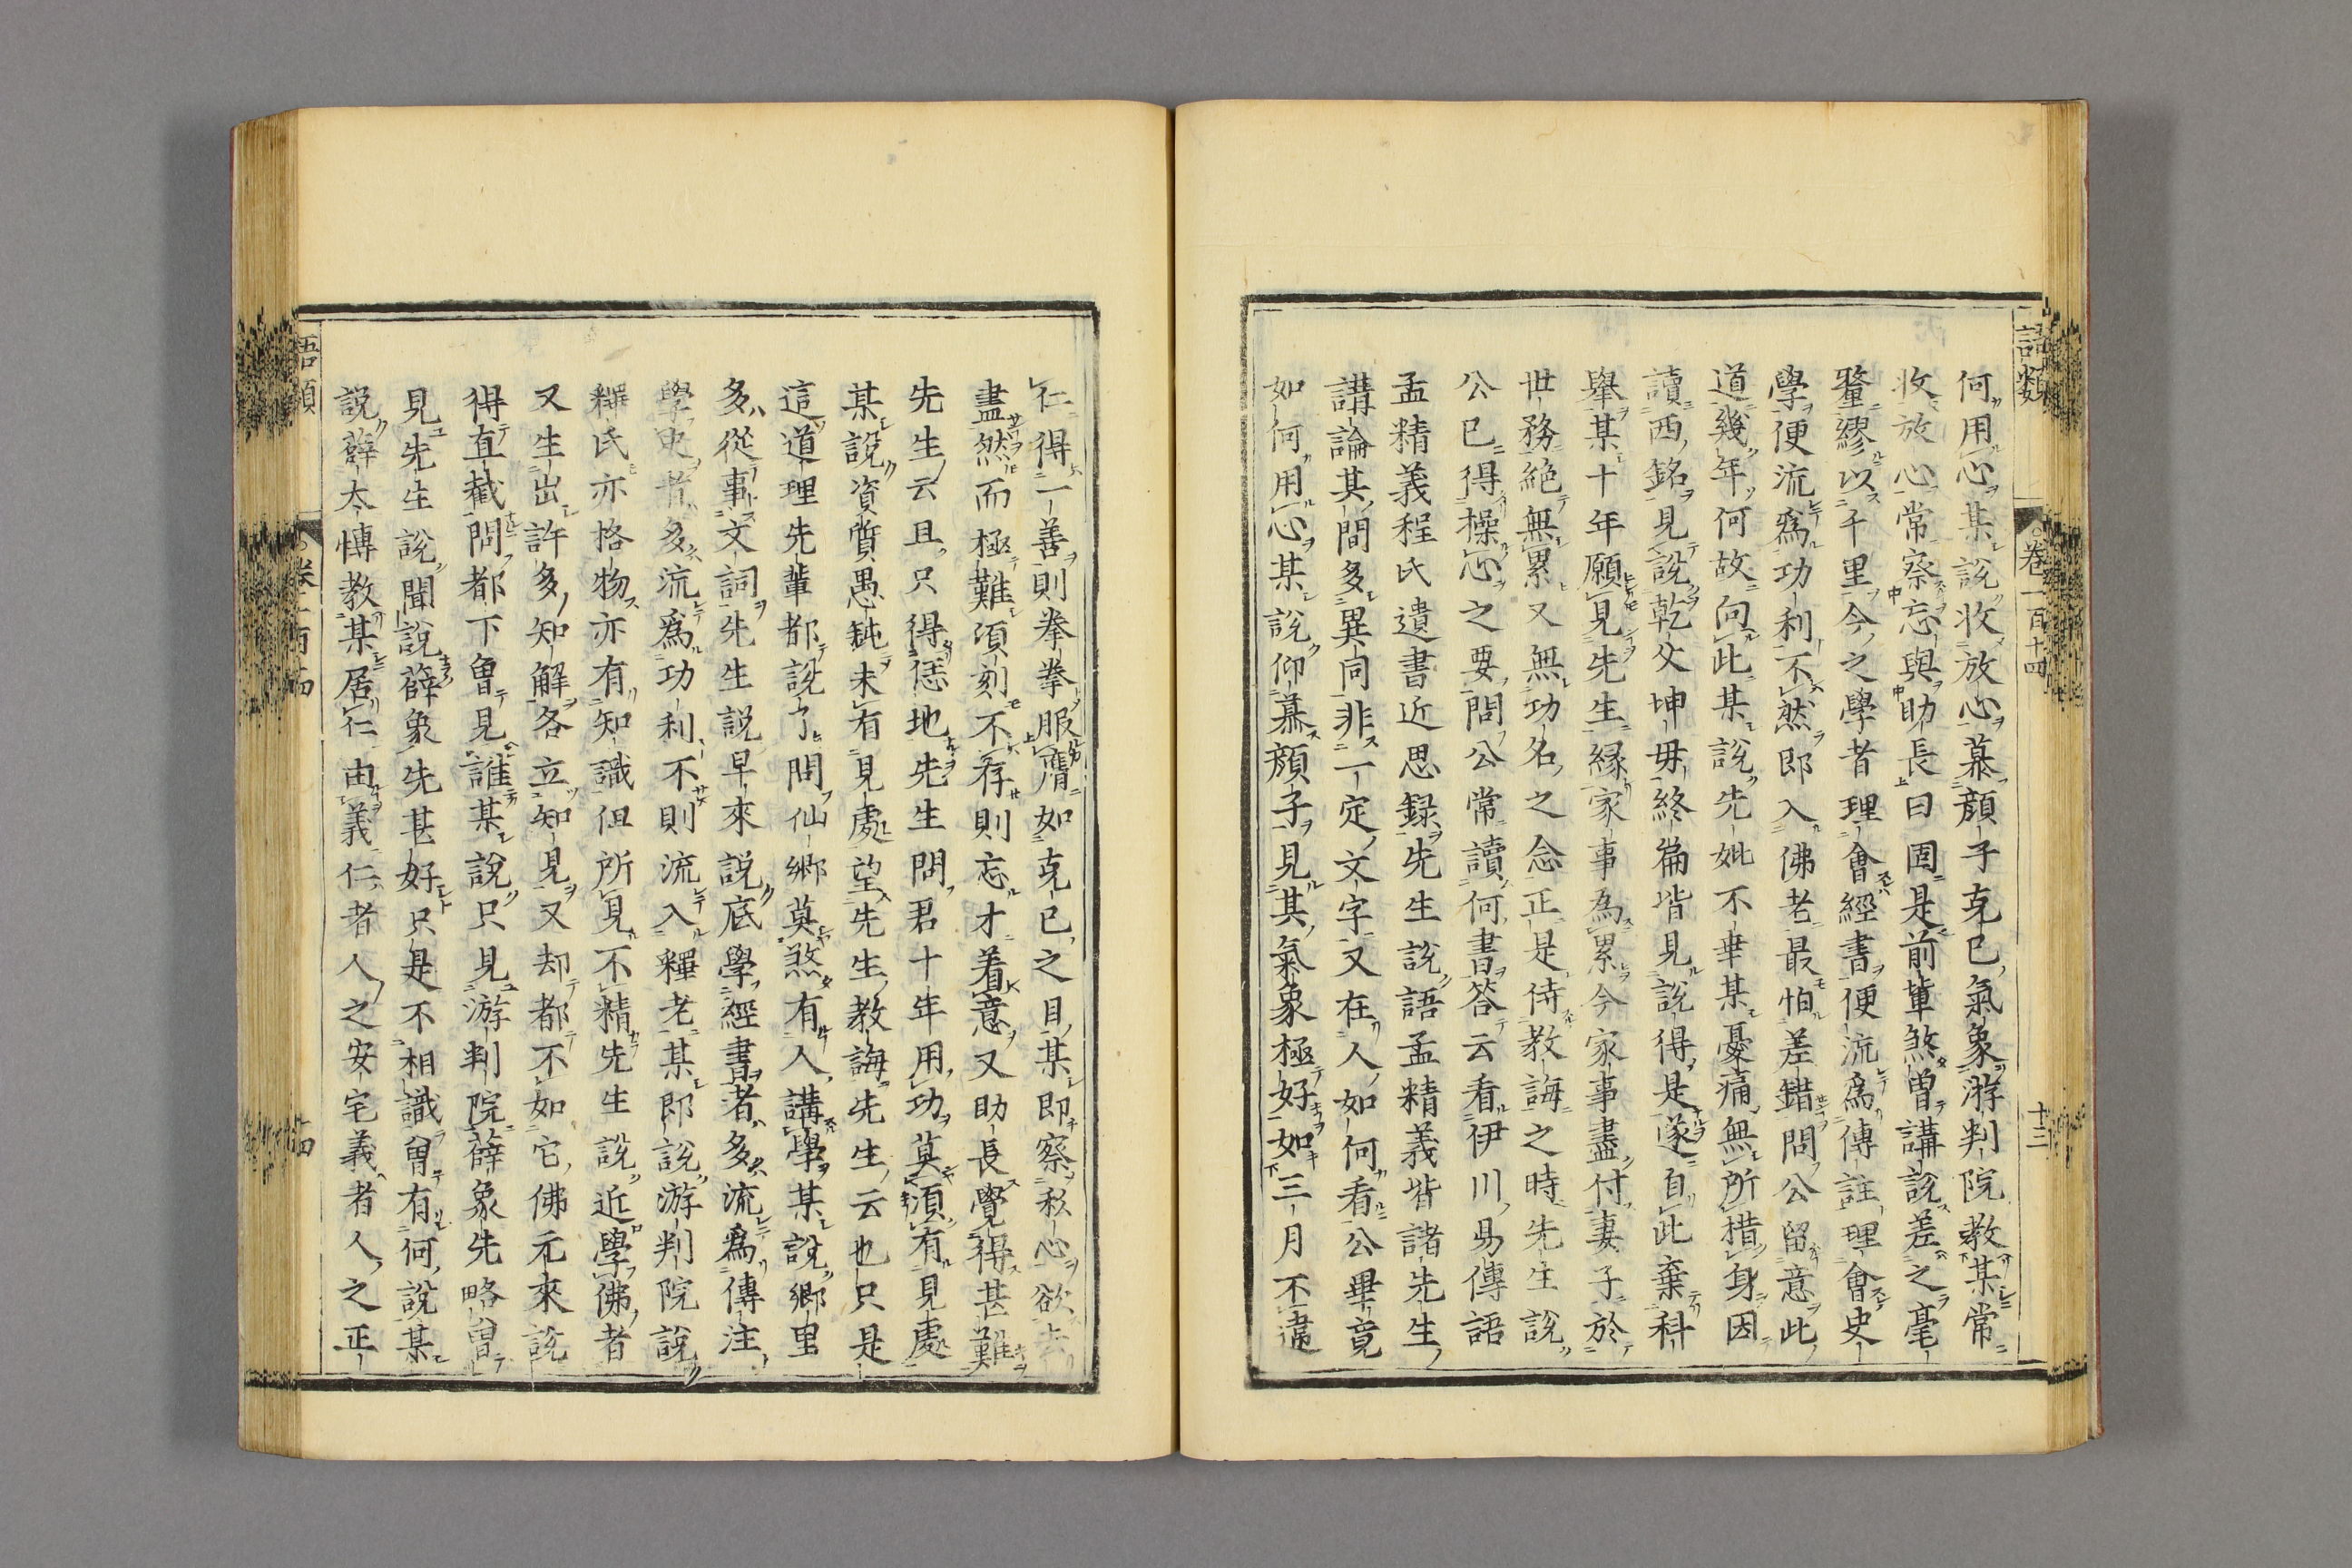 語類
卷一百十四
十三
何用心某說收放心慕顏子克己氣象游判院教某常
收放心常察忘與助長曰固是前輩煞曾講說差之毫
釐繆以千里今之學者理會經書便流爲傳註理會史
學便流爲功利不然即入佛老最怕差錯問公留意此
道幾年何故向此某說先妣不幸某憂痛無所措身因
讀西銘見說乾父坤母終篇皆見說得是遂自此棄科
舉某十年願見先生緣家事為累今家事盡付妻子於
世務絕無累又無功名之念正是侍教誨之時先生說
公已得操心之要問公常讀何書答云看伊川易傳語
孟精義程氏遺書近思録先生說語孟精義皆諸先生
講論其間多異同非一定文字又在人如何看公畢竟
如何用心某說仰慕顏子見其氣象極好如三月不違
仁得一善則拳拳服膺如克己之目某即察私心欲去
盡然而極難須刻不存則忘才着意又助長覺得甚難
先生云且只得恁地先生問君十年用功莫須有見處
某說資質愚鈍未有見處望先生教誨先生云也只是
這道理先輩都說了問仙鄉莫煞有人講學某說鄉里
多從事文詞先生說早來說底學經書者多流爲傳注
學史者多流爲功利不則流入釋老某即說游判院說
釋氏亦格物亦有知識但所見不精先生說近學佛者
又生出許多知解各立知見又却都不如它佛元來說
得直截問都下曾見誰某說只見游判院薛象先略曾
見先生說聞說薛象先甚好只是不相識曾有何說某
說薛太愽教某居仁由義仁者人之安宅義者人之正
語類